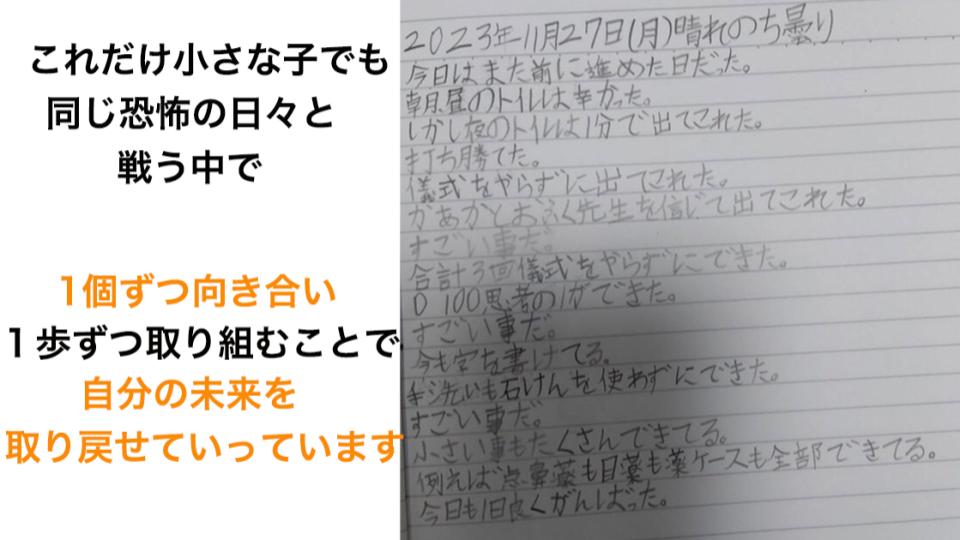 これだけ小さな子でも
同じ恐怖の日々と
戦う中で
1個ずつ向き合い
１歩ずつ取り組むことで
自分の未来を
取り戻せていっています
2023年11月27日(月)晴れのち曇り
今日はまた前に進めた日だった。
朝昼のトイレは辛かった。
しかし夜のトイレは1分で出てこれた。
打ち勝てた。
儀式をやらずに出てこれた。
かあかとおふく先生を信じて出てこれた。
すごい事だ。
合計3回儀式をやらずにできた。
0 100思考の1ができた。
すごい事だ。
今も字を書けてる。
手洗いも石けんを使わずにできた。
すごい事だ。
小さい事もたくさんできてる。
例えば点鼻薬も目薬も薬ケースも全部できてる。
今日も1日良くがんばった。